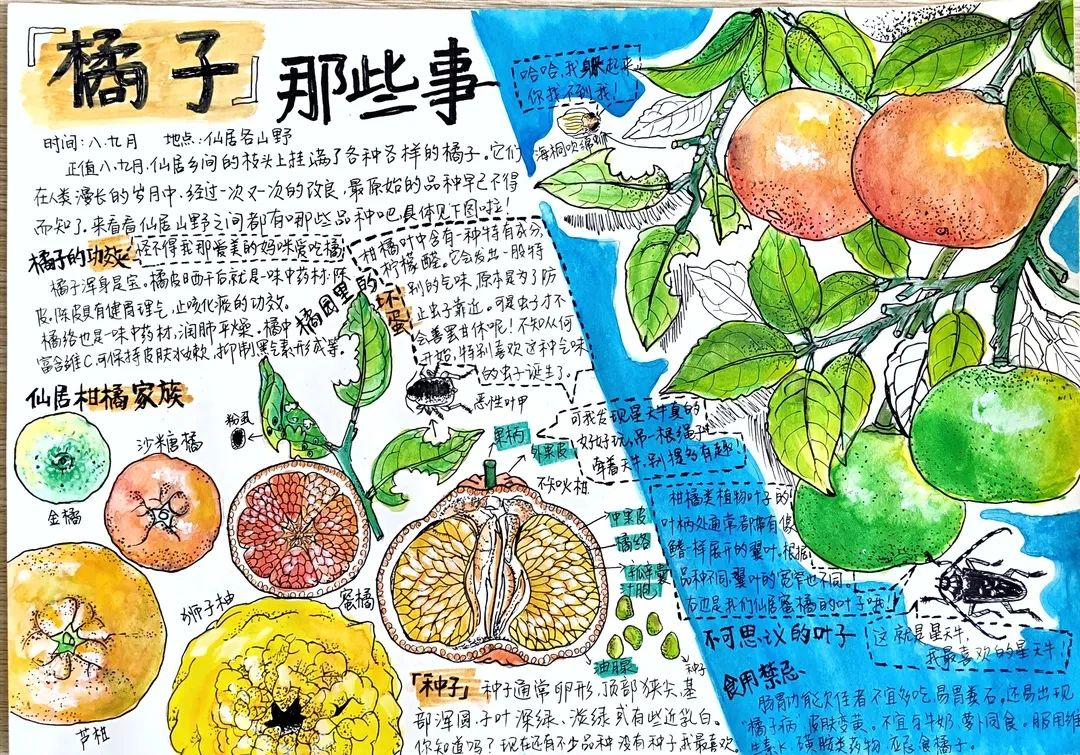 『橘子』那些事
时间:八.九月 地点:仙居各山野
正值八.九月.仙居乡间的枝头上挂满了各种各样的橘子。它们
在人类漫长的岁月中,经过一次又一次的改良,最原始的品种早已不得
而知了,来看看仙居山野之间都有哪些品种吧,具体见下图啦!
哈哈,我躲起来,
你找不到我!
海桐吹绵蚧
橘子的功效
还不得我那爱美的妈咪爱吃橘
橘子浑身是宝。橘皮晒干后就是一味中药材.陈
皮.陈皮具有健胃理气,止咳化痰的功效。
橘络也是一味中药材,润肺平燥。橘中
富含维C,可保持皮肤水嫩,抑制黑色素形成等。
橘园里的坏蛋
柑橘叶中含有一种特有成分,
柠檬醛。它会发出一股特
别的气味,原本是为了防
止虫子靠近。可是虫子才不
会善罢甘休呢!不知从何
开始,特别喜欢这种气味
的虫子诞生了。
恶性叶甲
粉虱
可我发现星天牛真的
好好玩,吊一根绳子
牵着天牛,别提多有趣!
仙居柑橘家族
金橘
沙糖橘
芦柑
狮子柚
蜜橘
不知火柑
果柄
外果皮
中果皮
橘络
汁胞
油腺
种子
柑橘类植物叶子的
叶柄处通常都带有像
鳍一样展开的翼叶.根据
品种不同.翼叶的宽窄也不同。
右边是我们仙居蜜橘的叶子哦!
不可思议的叶子
这就是星天牛,
我最喜欢的星天牛!
「种子」种子通常卵形,顶部狭尖,基
部浑圆,子叶深绿、淡绿或有些近乳白。
你知道吗?现在还有不少品种没有种子我最喜欢
食用禁忌
肠胃功能欠佳者不宜多吃,易胃粪石。还易出现
"橘子病",皮肤变黄。不宜与牛奶萝卜同食。服用维